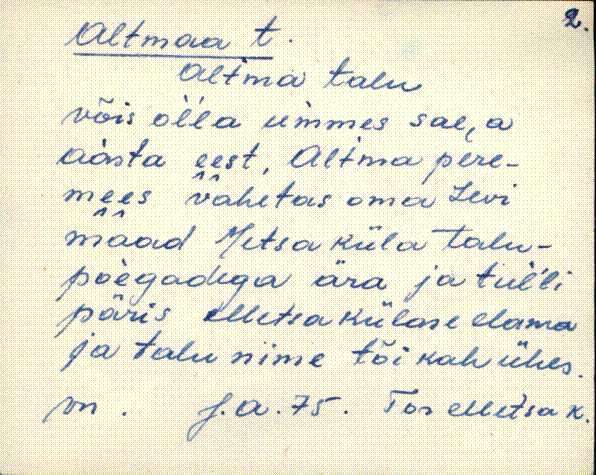 2.
Altmaa t.
Altma talu
võis òlla ummes saea
aàsta eest, Altma pere-
mees vahetas oma Levi
maad Metsaküla talu-
pòegadega ära ja tulli
päris Metsakülase elama
ja talu nime tõi kah ühes.
vn. J.A.75. Tor Metsa k.